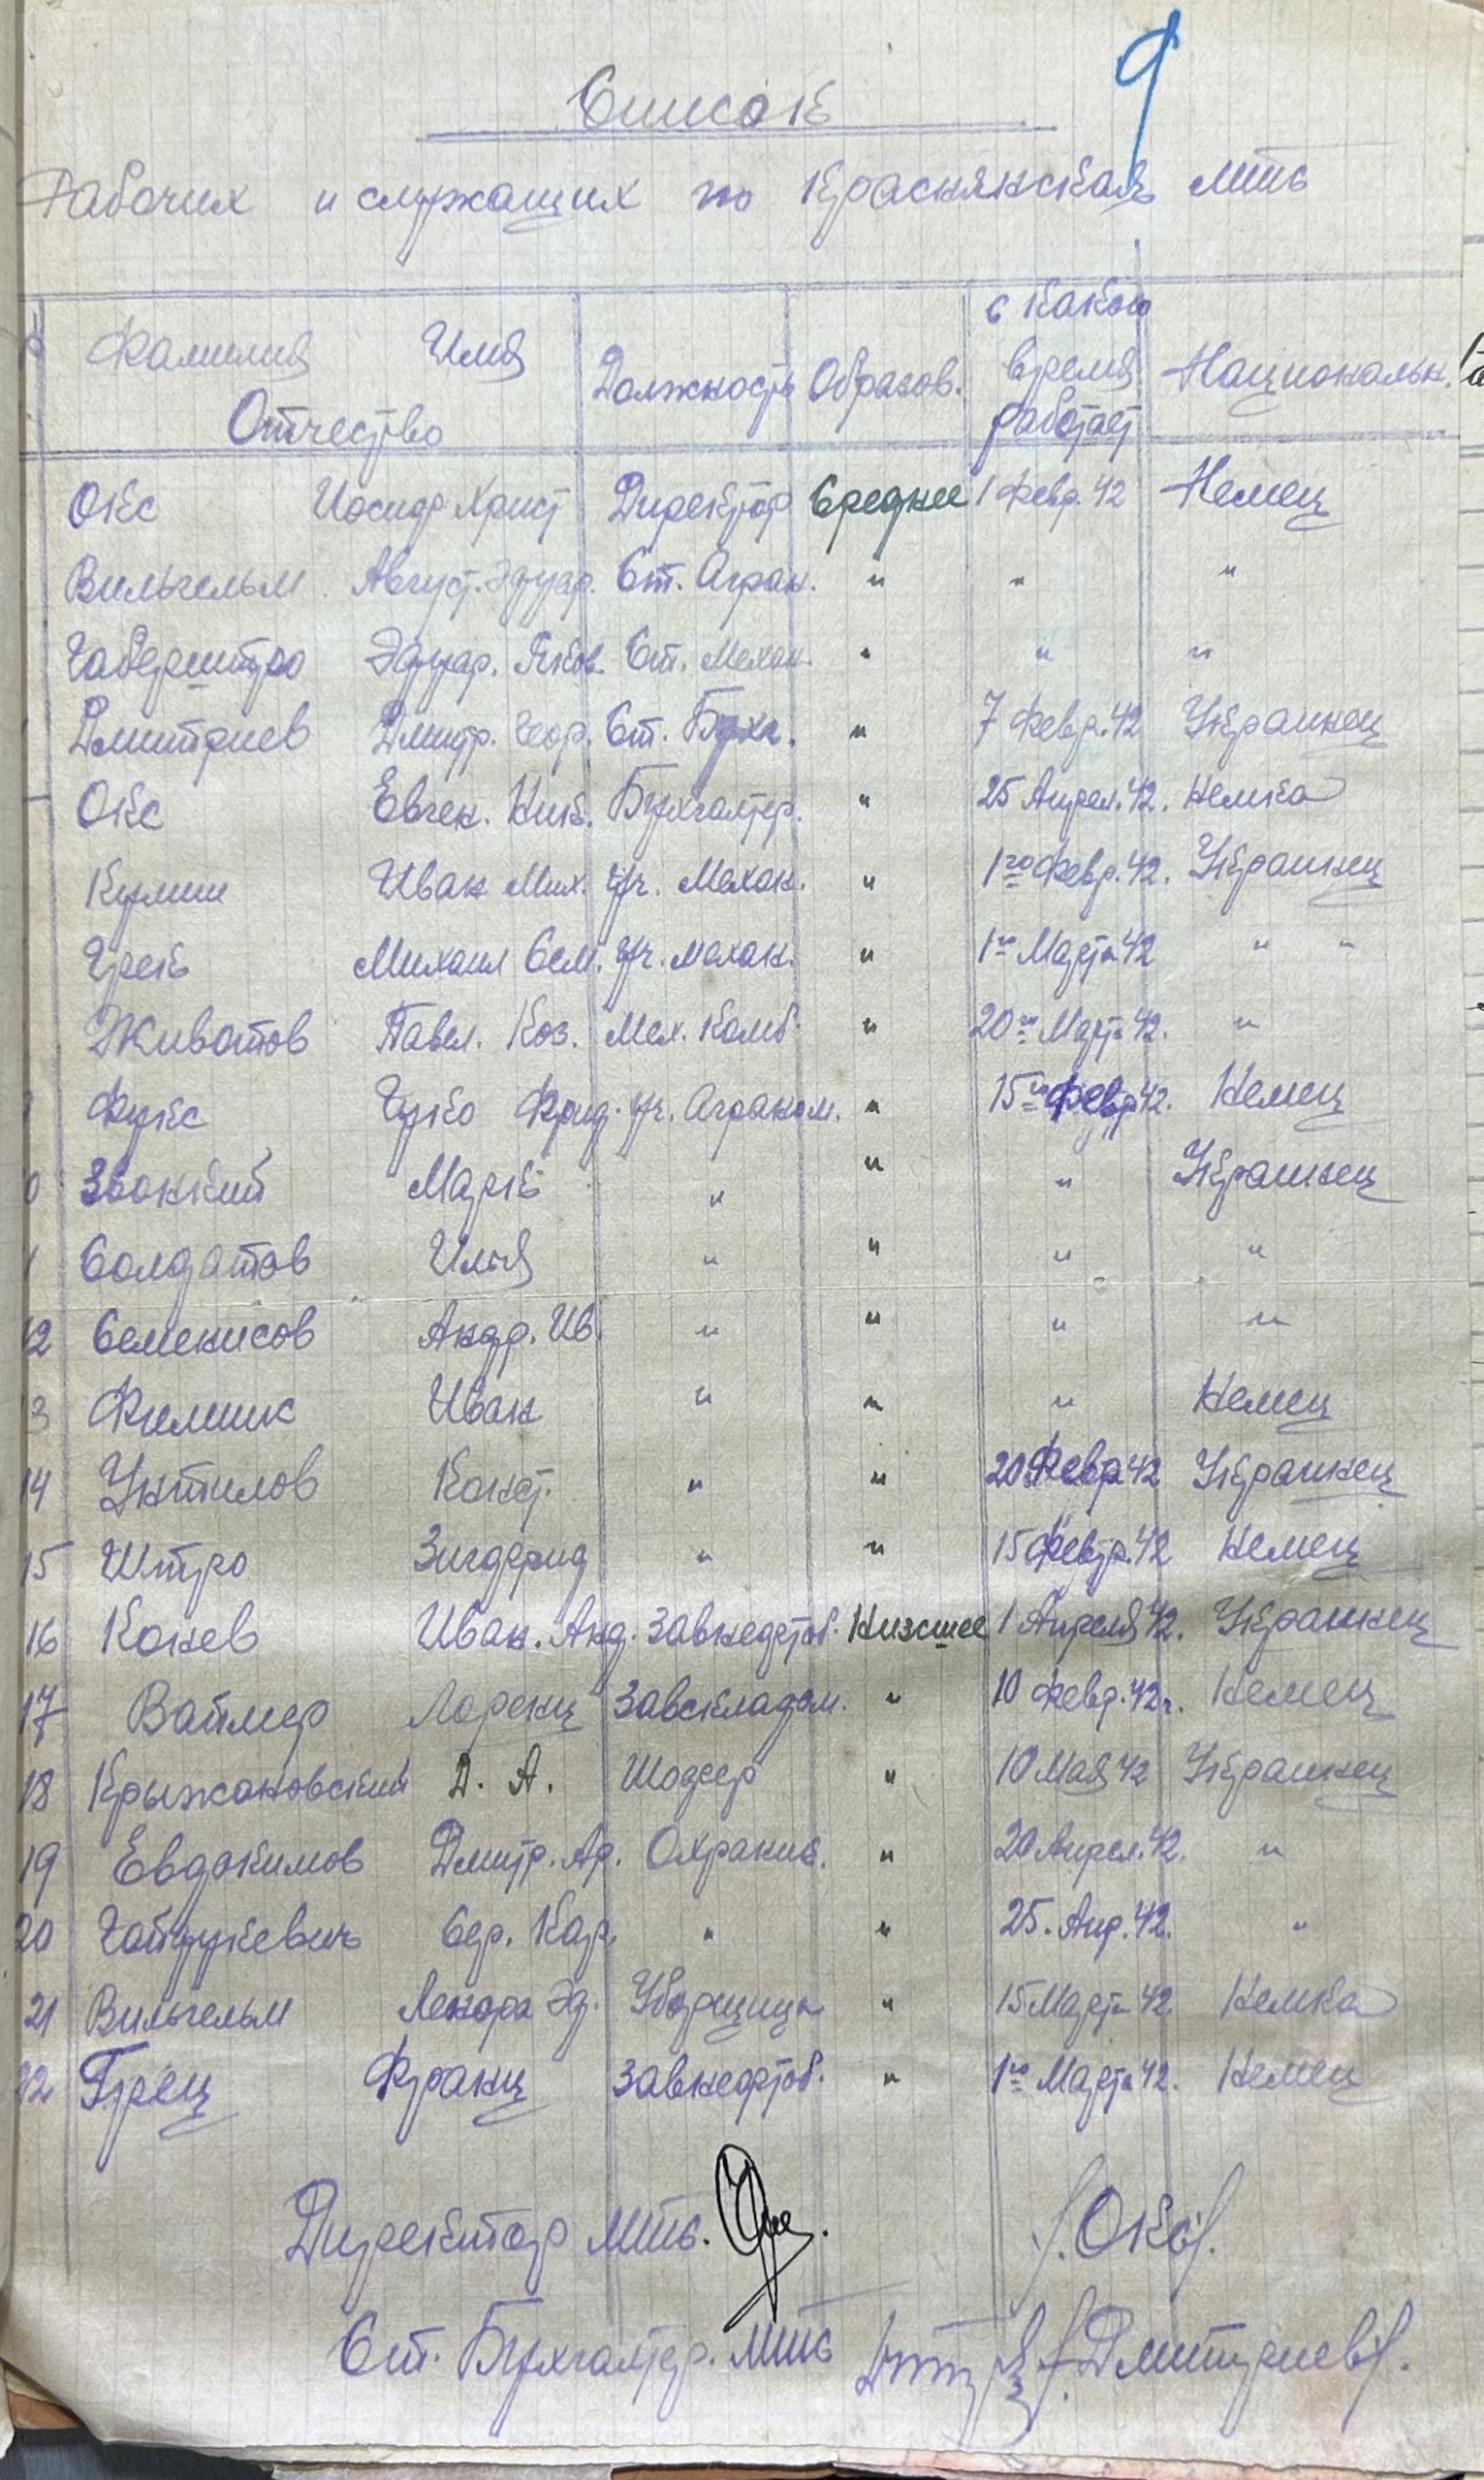 9
Список
Рабочих и служащих по Краснянская мтс
Фамилия Имя Отчество Должность Образов. с какого время работает Национальн.
Окс Иосиф Христ Директор Среднее 1 Февр. 42 Немец
Вильгельм Август. Эдуар. Ст. Агран. " " "
Габерштро Эдуар. Яков. Ст. Механ. " " "
Дмитриев Дмитр. Геор. Ст. Бухг. " 7 Февр. 42 Украинец
Окс Евген. Ник. Бухгалтер. " 25 Апрел. 42. Немка
Кулиш Иван Мих. Уч. Механ. " 1го Февр. 42. Украинец
Грек Михаил Сем. Уч. механ. " 1го Марта 42 " "
Животов Павел. Коз. Мех. Комб. " 20го Марта 42. "
Фукс Гуко Фрид. Уч. Аграном. " 15го Февр 42. Немец
0 Звонкий Марк " " " Украинец
1 Солдатов Илья " " " "
12 Семенисов Андр. Ив " " " "
3 Филипс Иван " " " Немец
14 Унтилов Конст. " " 20 Февр 42 Украинец
15 Штро Зигфрид " " 15 Февр. 42 Немец
16 Конев Иван. Анд. Завнефтоб. Низшее 1 Апреля 42. Украинец
17 Ваймер Лоренц Завскладом. " 10 Февр. 42г. Немец
18 Крыжановский Д. А. Шофер " 10 Мая 42 Украинец
19 Евдокимов Дмитр. Ар. Охраник. " 20 Апрел. 42. "
20 Гайдукевичь Сер. Кар. " " 25. Апр. 42. "
21 Вильгельм Ленора Эд. Уборщица " 15 Марта 42 Немка
22 Грец Франц Завнефтоб. " 1го Марта 42. Немец
Директор мтс. /Окс/.
Ст. Бухгалтер. мтс /Дмитриев/.